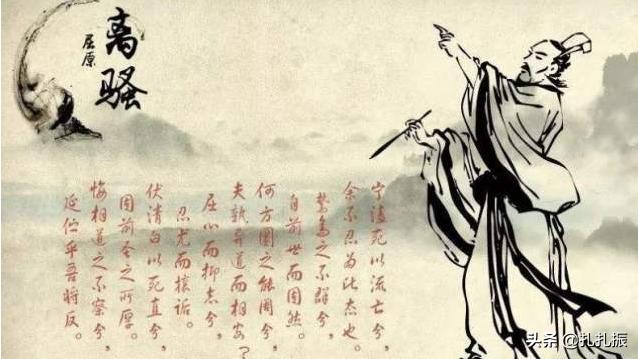 离骚
屈原
宁溘死以流亡兮，
余不忍为此态也。
鸷鸟之不群兮，
自前世而固然。
何方圜之能周兮，
夫孰异道而相安？
屈心而抑志兮，
忍尤而攘诟。
伏清白以死直兮，
固前圣之所厚。
悔相道之不察兮，
延伫乎吾将反。
头条 @扎扎振